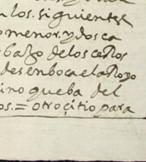 los siguientes
menor, y dos ca
bajo de los cerros
desemboca el arroyo
no que ba del
os = otro çitio para